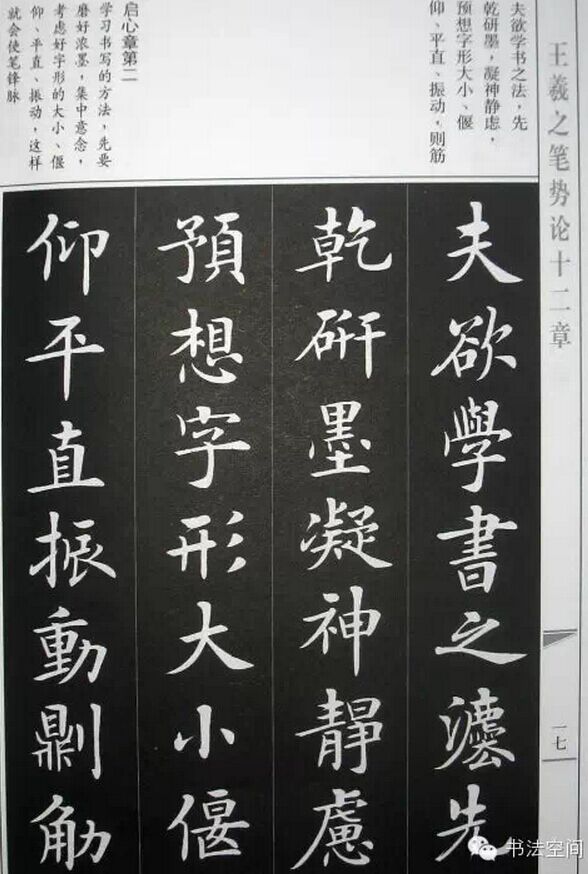 王羲之笔势论十二章
一七
夫欲学书之法，先
乾研墨，凝神静虑，
预想字形大小、偃
仰、平直、振动，则筋
启心章第二
学习书写的方法，先要
磨好浓墨，集中意念，
考虑好字形的大小、偃
仰、平直、振动，这样
就会使笔锋脉
夫欲學書之灋先
乾研墨凝神靜慮
預想字形大小偃
仰平直振動則筋
书法空间